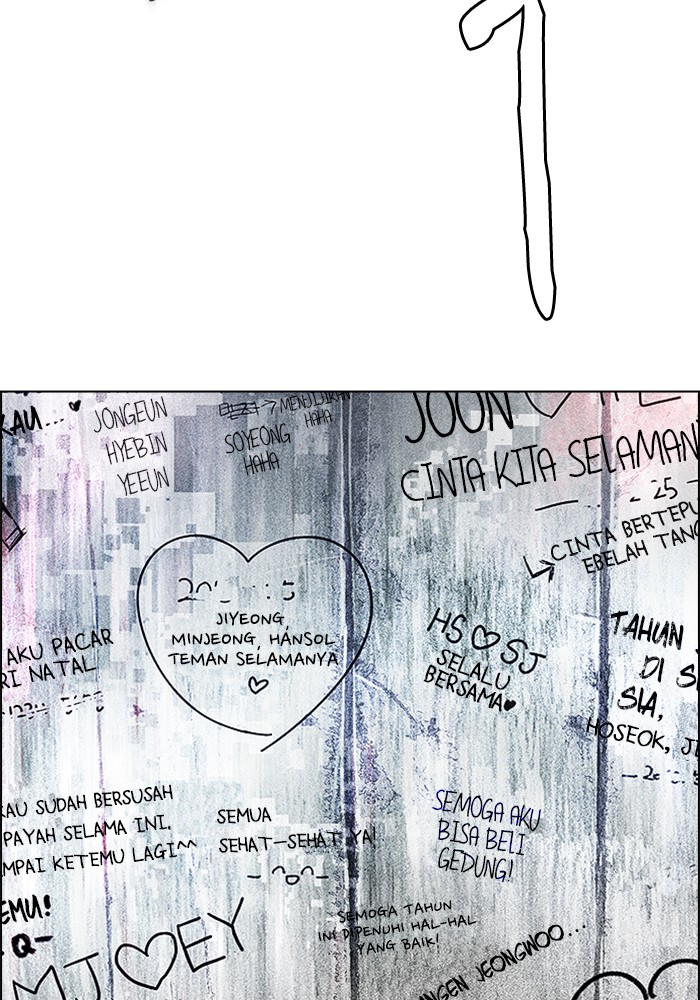 1
KAU... ♥
JONGEUN
HYEBIN
YEEUN
MENJIJIKAN
HAHA
SOYEONG
HAHA
JOON ♡
CINTA KITA SELAMAN
- 25 -
CINTA BERTEPU
EBELAH TANG
JIYEONG,
MINJEONG, HANSOL
TEMAN SELAMANYA
♡
HS ♡ SJ
SELALU
BERSAMA♥
AKU PACAR
RI NATAL
TAHUN
DI S
SIA,
HOSEOK, J
KAU SUDAH BERSUSAH
PAYAH SELAMA INI.
MPAI KETEMU LAGI^^
SEMUA
SEHAT-SEHAT YA!
SEMOGA AKU
BISA BELI
GEDUNG!
EMU!
- Q -
MJ ♡ EY
SEMOGA TAHUN
INI DIPENUHI HAL-HAL
YANG BAIK!
NGEN JEONGWOO...